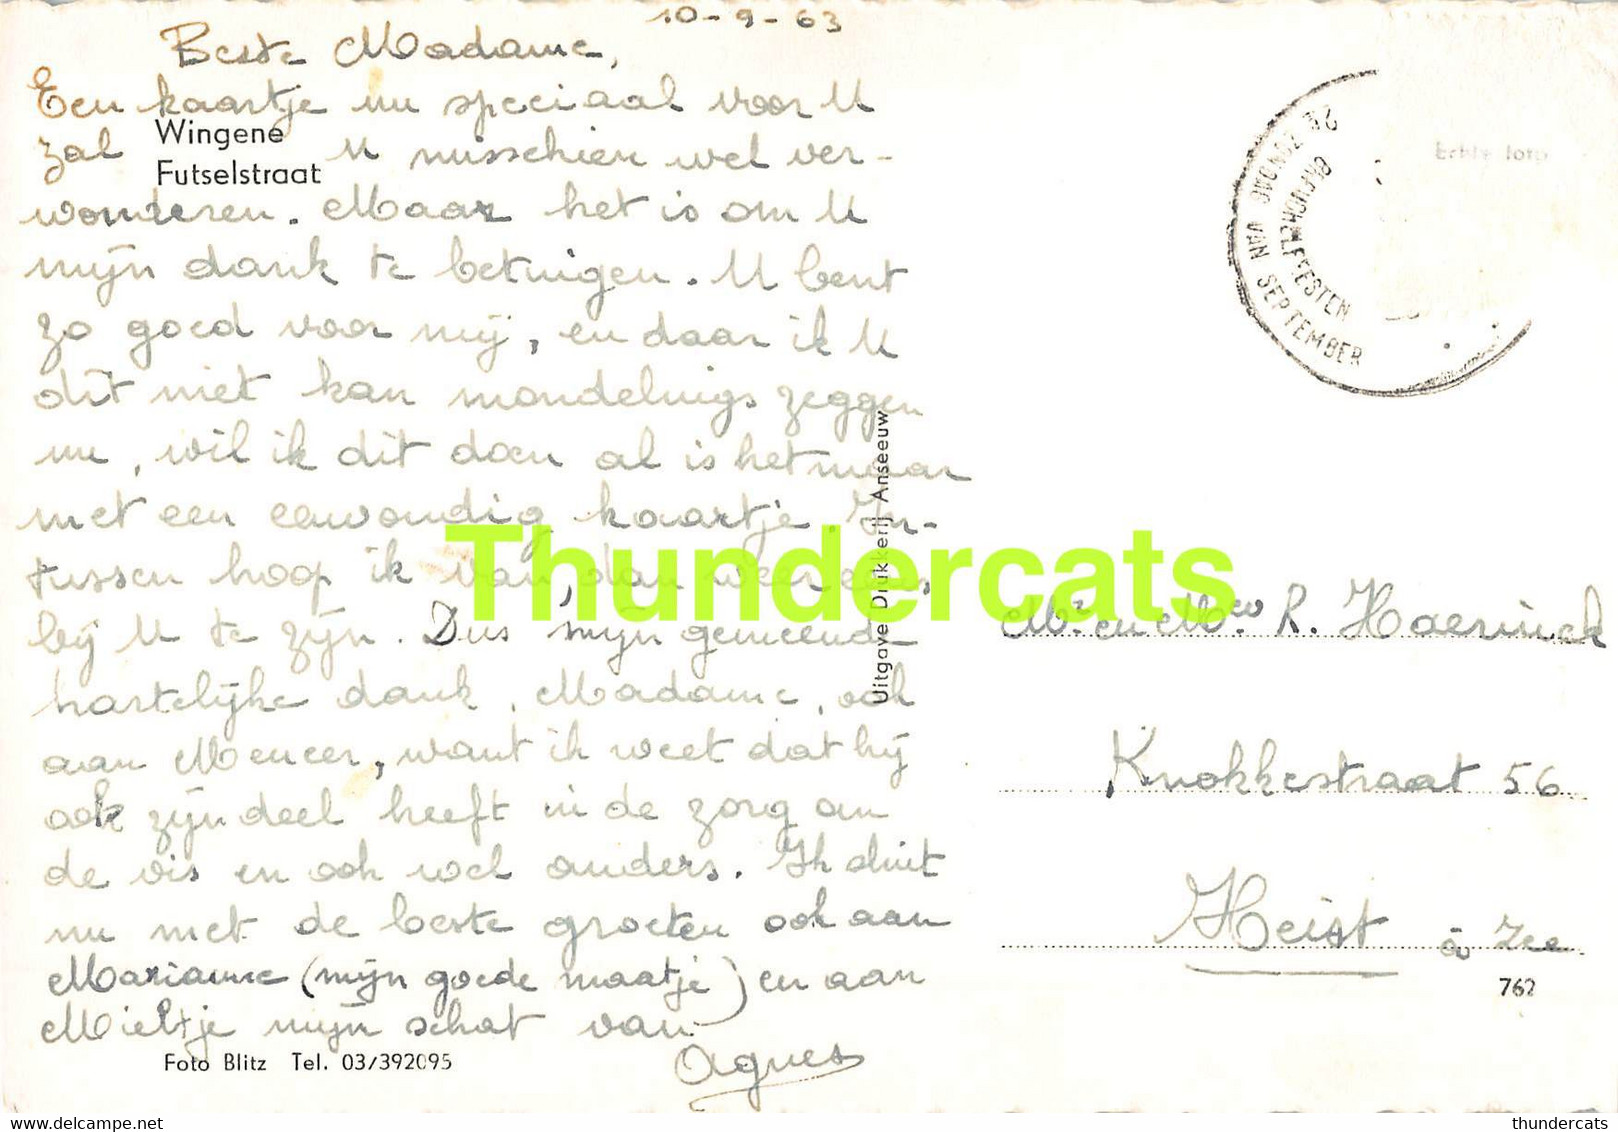 10-9-63
Beste Madame,
Een kaartje nu speciaal voor U
zal U misschien wel ver-
wonderen. Maar het is om U
mijn dank te betuigen. U bent
zo goed voor mij, en daar ik U
dit niet kan mondelings zeggen
nu, wil ik dit doen al is het maar
met een eenvoudig kaartje. In-
tussen hoop ik van dan weer eens
bij U te zijn. Dus mijn gemeende
hartelijke dank, Madame, ook
aan Meneer, want ik weet dat hij
ook zijn deel heeft in de zorg om
de vis en ook wel anders. Ik sluit
nu met de beste groeten ook aan
Marianne (mijn goede maatje) en aan
Mieltje mijn schat van
Agnes
Wingene
Futselstraat
Foto Blitz Tel. 03/392095
Uitgave Drukkerij Anseeuw
2de ZONDAG VAN SEPTEMBER
BREUGHELFEESTEN
Echte foto
Mr. en Mevw R. Haerinck
Knokkestraat 56
Heist à Zee
762
Thundercats
https://www.delcampe.net
thundercats